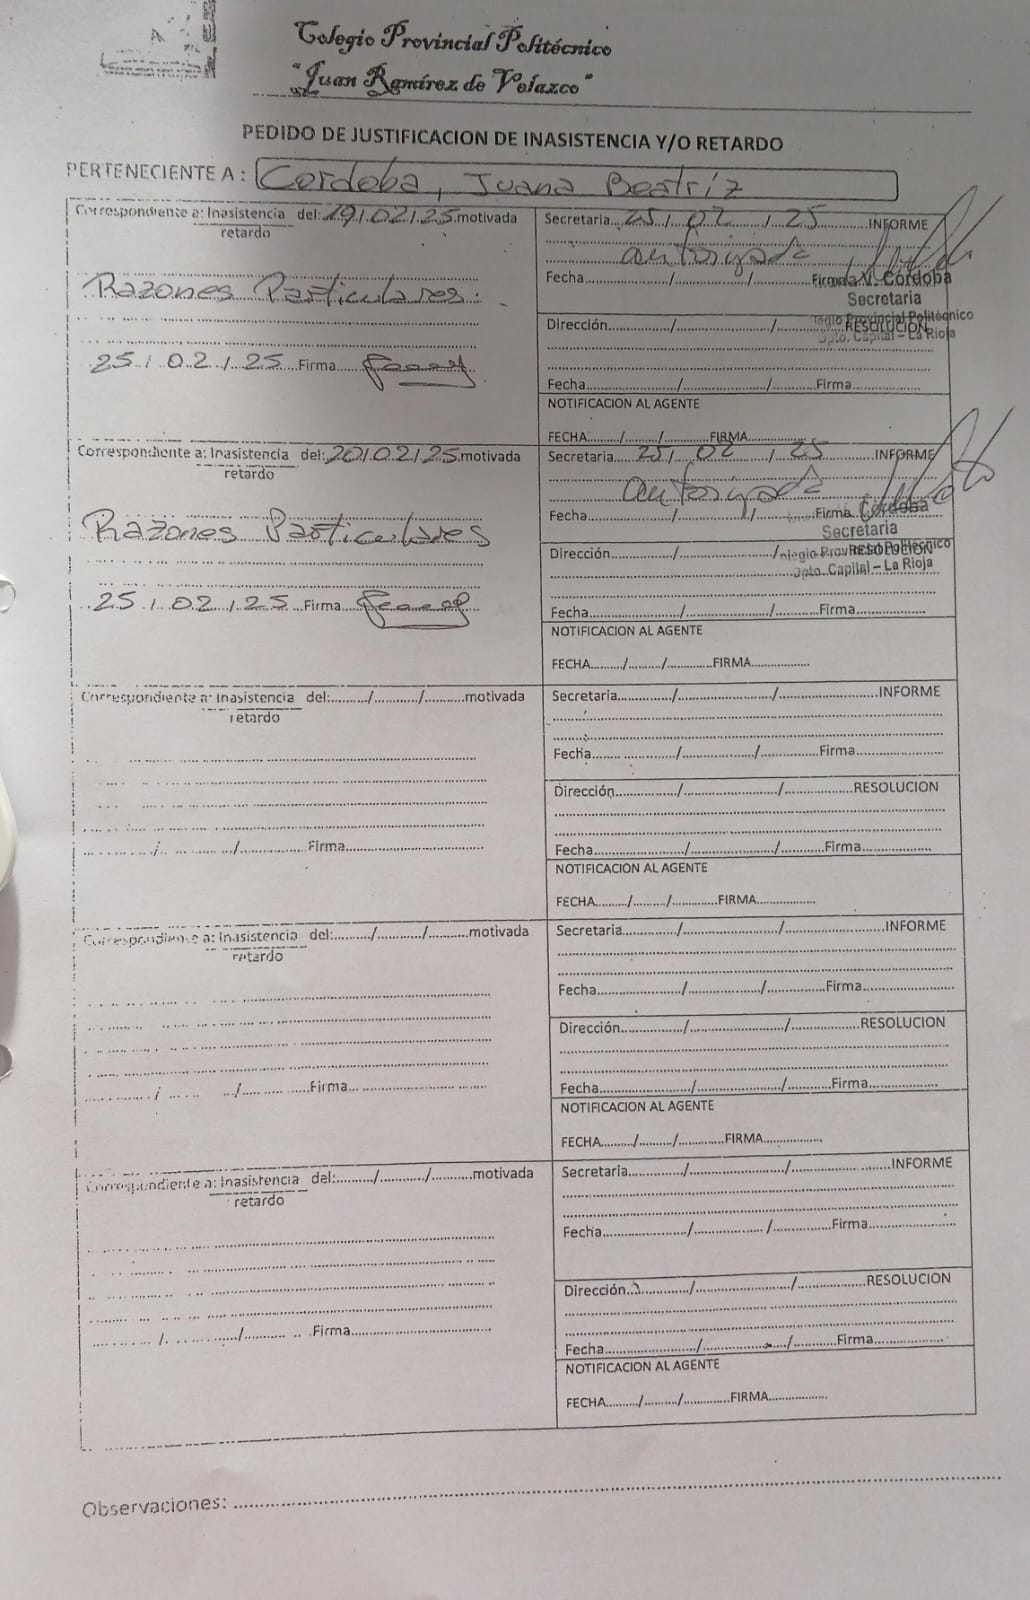 Colegio Provincial Politécnico
"Juan Ramírez de Velazco"
PEDIDO DE JUSTIFICACION DE INASISTENCIA Y/O RETARDO
PERTENECIENTE A: Cordoba, Juana Beatriz
Correspondiente a: Inasistencia del: 19/02/25 motivada
retardo
Razones Particulares.
25/02/25 Firma
Secretaria 25/02/25 INFORME
autorizado
Fecha / / Firma
a V. Córdoba
Secretaria
Colegio Provincial Politécnico
Dpto. Capital – La Rioja
Dirección / / RESOLUCION
Fecha / / Firma
NOTIFICACION AL AGENTE
FECHA / / FIRMA
Correspondiente a: Inasistencia del: 20/02/25 motivada
retardo
Razones Particulares
25/02/25 Firma
Secretaria 25/02/25 INFORME
autorizado
Fecha / / Firma
Córdoba
Secretaria
Colegio Provincial Politécnico
Dpto. Capital – La Rioja
Dirección / / RESOLUCION
Fecha / / Firma
NOTIFICACION AL AGENTE
FECHA / / FIRMA
Correspondiente a: Inasistencia del: / / motivada
retardo
/ / Firma
Secretaria / / INFORME
Fecha / / Firma
Dirección / / RESOLUCION
Fecha / / Firma
NOTIFICACION AL AGENTE
FECHA / / FIRMA
Correspondiente a: Inasistencia del: / / motivada
retardo
/ / Firma
Secretaria / / INFORME
Fecha / / Firma
Dirección / / RESOLUCION
Fecha / / Firma
NOTIFICACION AL AGENTE
FECHA / / FIRMA
Correspondiente a: Inasistencia del: / / motivada
retardo
/ / Firma
Secretaria / / INFORME
Fecha / / Firma
Dirección / / RESOLUCION
Fecha / / Firma
NOTIFICACION AL AGENTE
FECHA / / FIRMA
Observaciones: